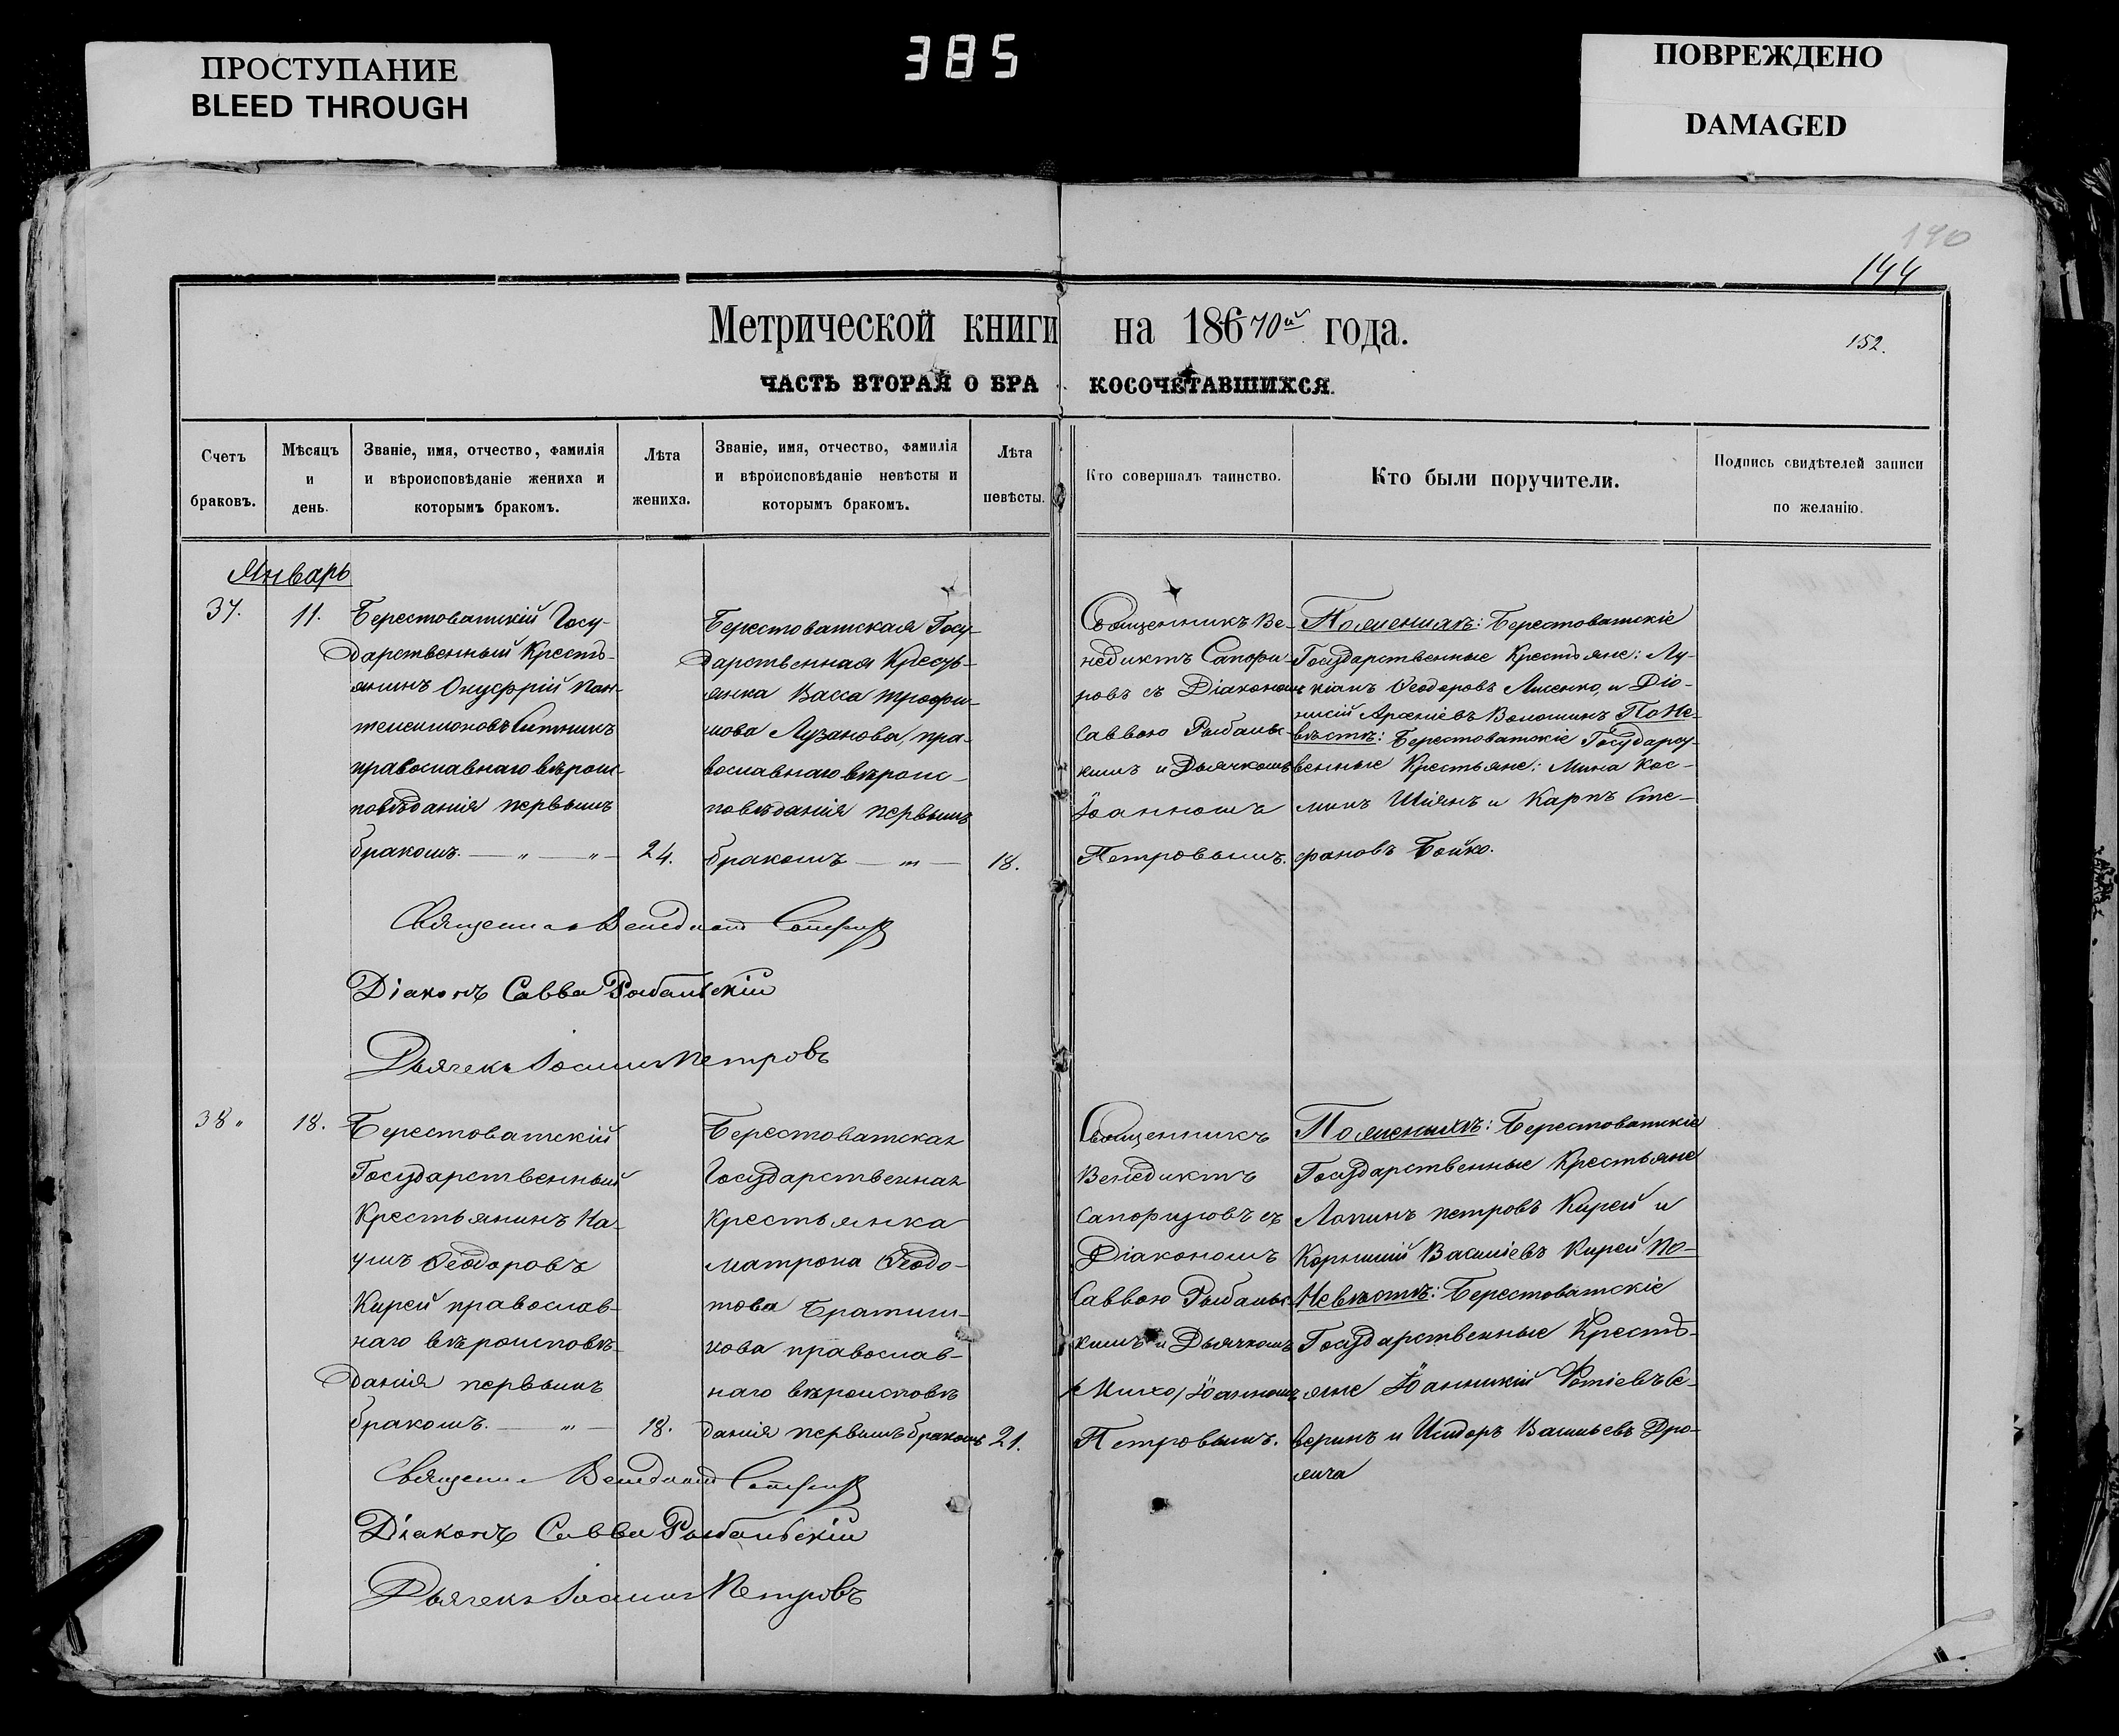 ПРОСТУПАНИЕ
BLEED THROUGH
385
ПОВРЕЖДЕНО
DAMAGED
190
144
Метрической книги на 18670й года.
152.
ЧАСТЬ ВТОРАЯ О БРАКОСОЧЕТАВШИХСЯ.
Счетъ
браковъ.
Мѣсяцъ
и
день.
Званіе, имя, отчество, фамилія
и вѣроисповѣданіе жениха и
которымъ бракомъ.
Лѣта
жениха.
Званіе, имя, отчество, фамилія
и вѣроисповѣданіе невѣсты и
которымъ бракомъ.
Лѣта
невѣсты.
Кто совершалъ таинство.
Кто были поручители.
Подпись свидѣтелей записи
по желанію.
Январь
37.
11.
Берестоватскій Госу-
дарственный Кресть-
янинъ Онуфрій Пан-
телеимоновъ Ситникъ
православнаго вѣроис-
повѣданія первымъ
бракомъ. — „ — „ —
24.
Берестоватская Госу-
дарственная Кресть-
янка Васса Трофи-
мова Лузанова, пра-
вославнаго вѣроис-
повѣданія первымъ
бракомъ — „ —
18.
Священникъ Ве-
недиктъ Сапфи-
ровъ съ Діакономъ
Саввою Рыбальс-
кимъ и Дьячкомъ
Іоанномъ
Петровымъ.
По женихѣ: Берестоватскіе
Государственные Крестьяне: Лу-
кіанъ Ѳеодоровъ Лисенко, и Діо-
нисій Арсеніевъ Волошинъ По Не-
вѣстѣ: Берестоватскіе Государст-
венные Крестьяне: Мина Кос-
минъ Шіянъ и Карпъ Сте-
фановъ Бойко.
Священник Венедикт
Діаконъ Савва Рыбальскій
Дьячекъ Іоаннъ Петровъ
38 „
18.
Берестоватскій
Государственный
Крестьянинъ На-
умъ Ѳеодоровъ
Кирей православ-
наго вѣроисповѣ-
данія первымъ
бракомъ. — „ —
18.
Берестоватская
Государственная
Крестьянка
Матрона Ѳеодо-
това Братиш-
кова православ-
наго вѣроисповѣ
данія первымъ бракомъ
21.
Священникъ
Венедиктъ
съ
Діакономъ
Саввою Рыбальс-
кимъ и Дьячкомъ
Іоанномъ
Петровымъ.
По женихѣ: Берестоватскіе
Государственные Крестьяне
Логинъ Петровъ Кирей и
Корнилій Василіевъ Кирей По-
Невѣстѣ: Берестоватскіе
Государственные Кресть-
яне Іоанникій Фотіевъ Се-
веринъ и Исидоръ Васильевъ Дро-
яича
Священник Венедикт
Діаконъ Савва Рыбальскій
Дьячекъ Іоаннъ Петровъ